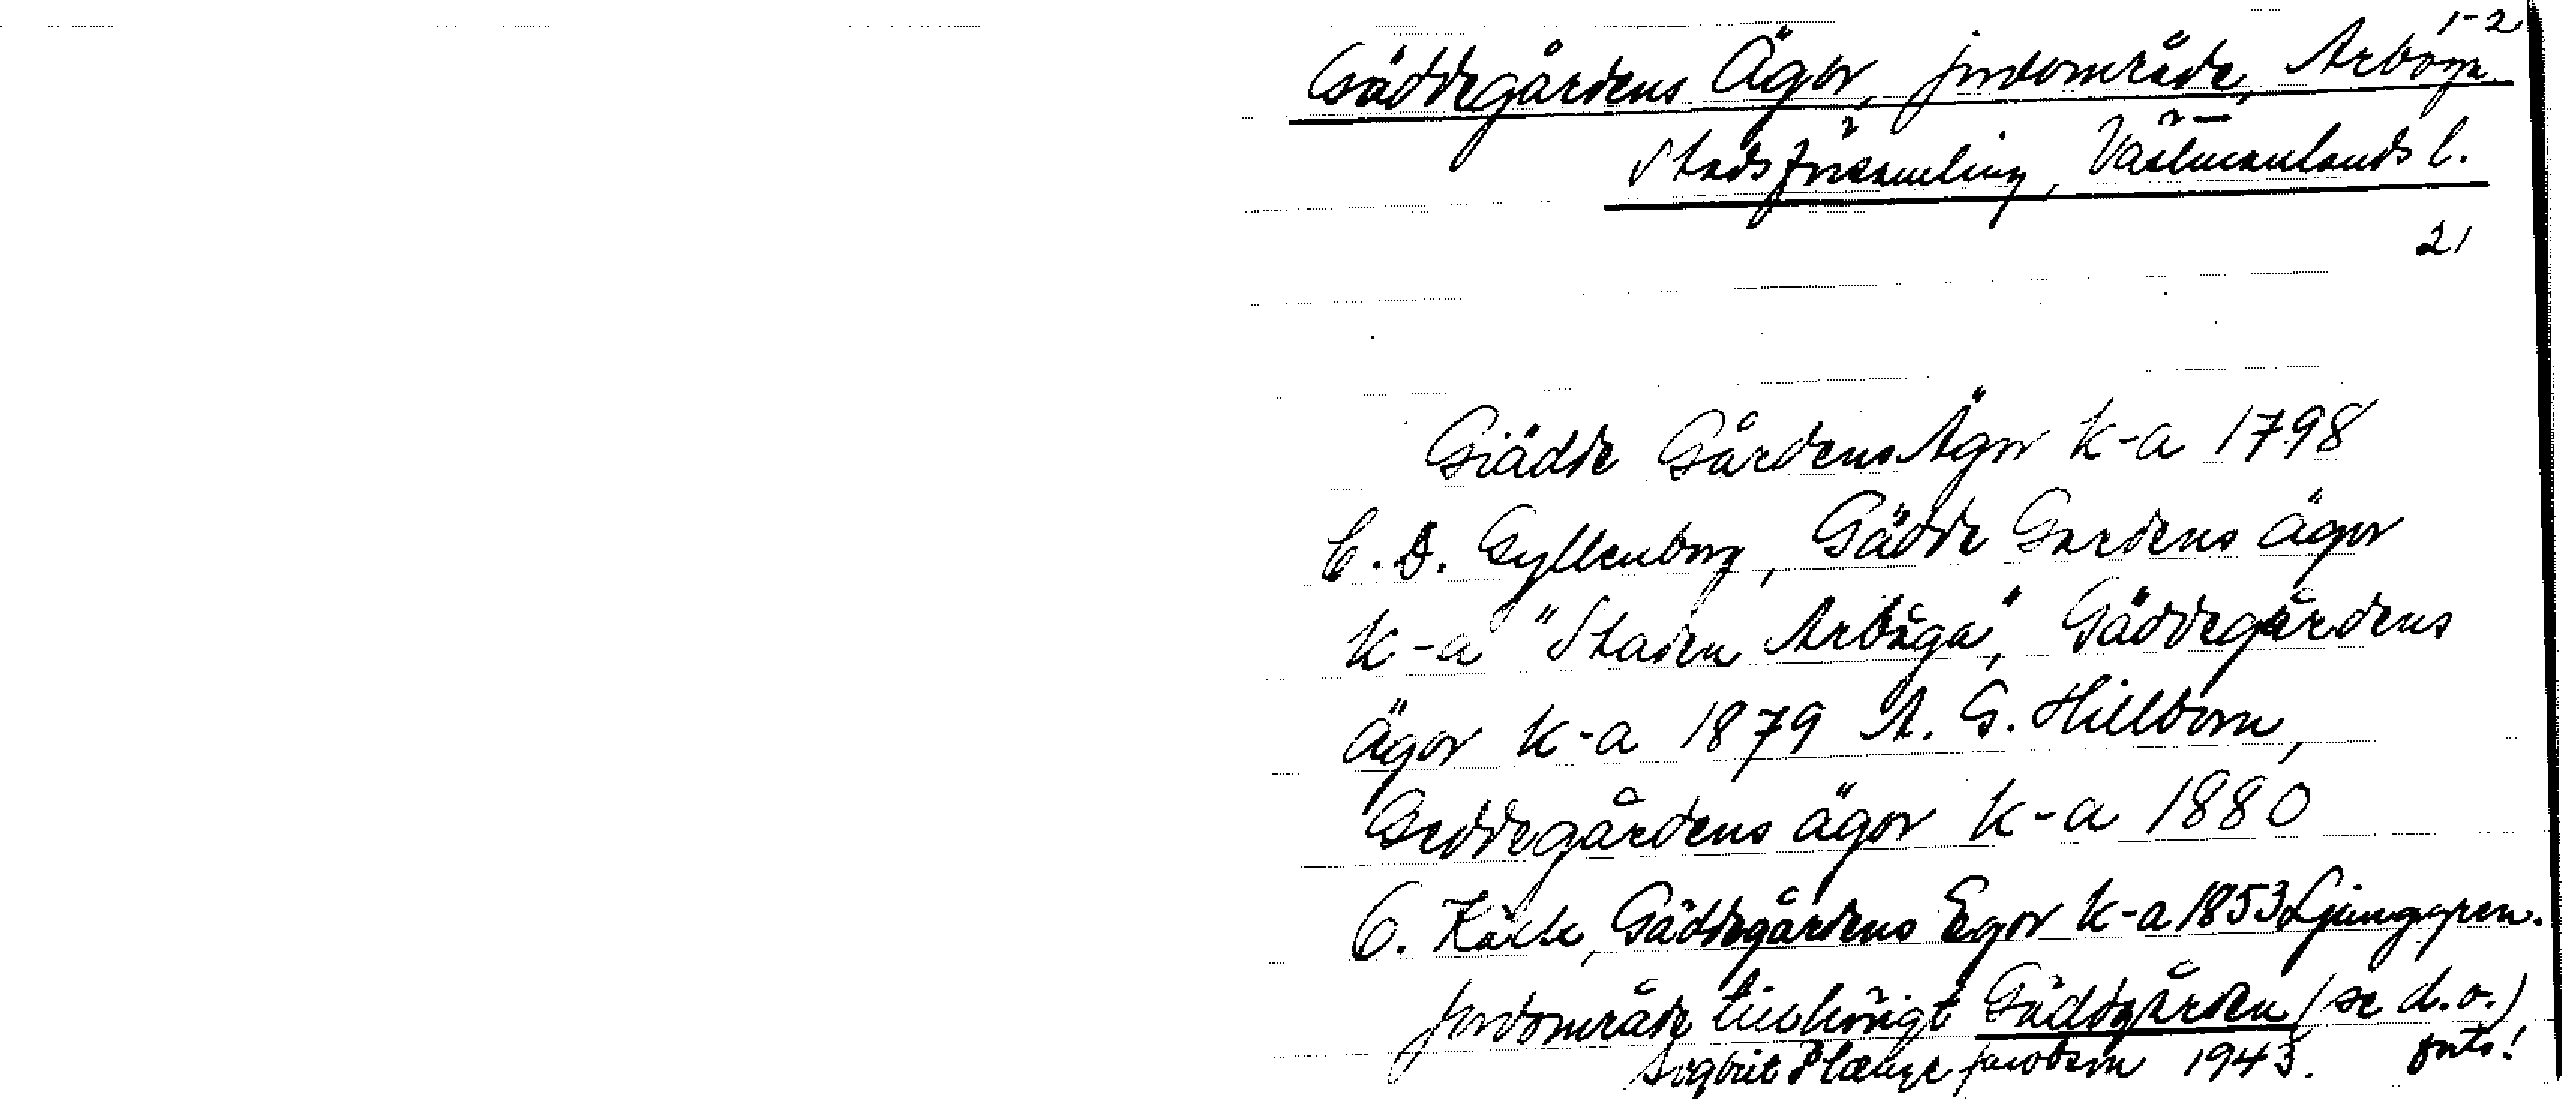 1-2
Gäddegårdens Ägor, jordområde, Arboga
Stadsförsamling, Västmanlands l.
21
Giädde Gårdens Ägor k-a 1798
C. D. Gyllenborg, Gädde Gardens ägor
k-a "Staden Arboga", Gäddegårdens
Ägor k-a 1879 A. G. Hillbom,
Geddegårdens ägor k-a 1880
C. Gäddegårdens Egor k-a 1853 Ljunggren.
Jordområde tillhörigt Gäddgården (se d.o.)
Plænge Jacobson 1943. forts!